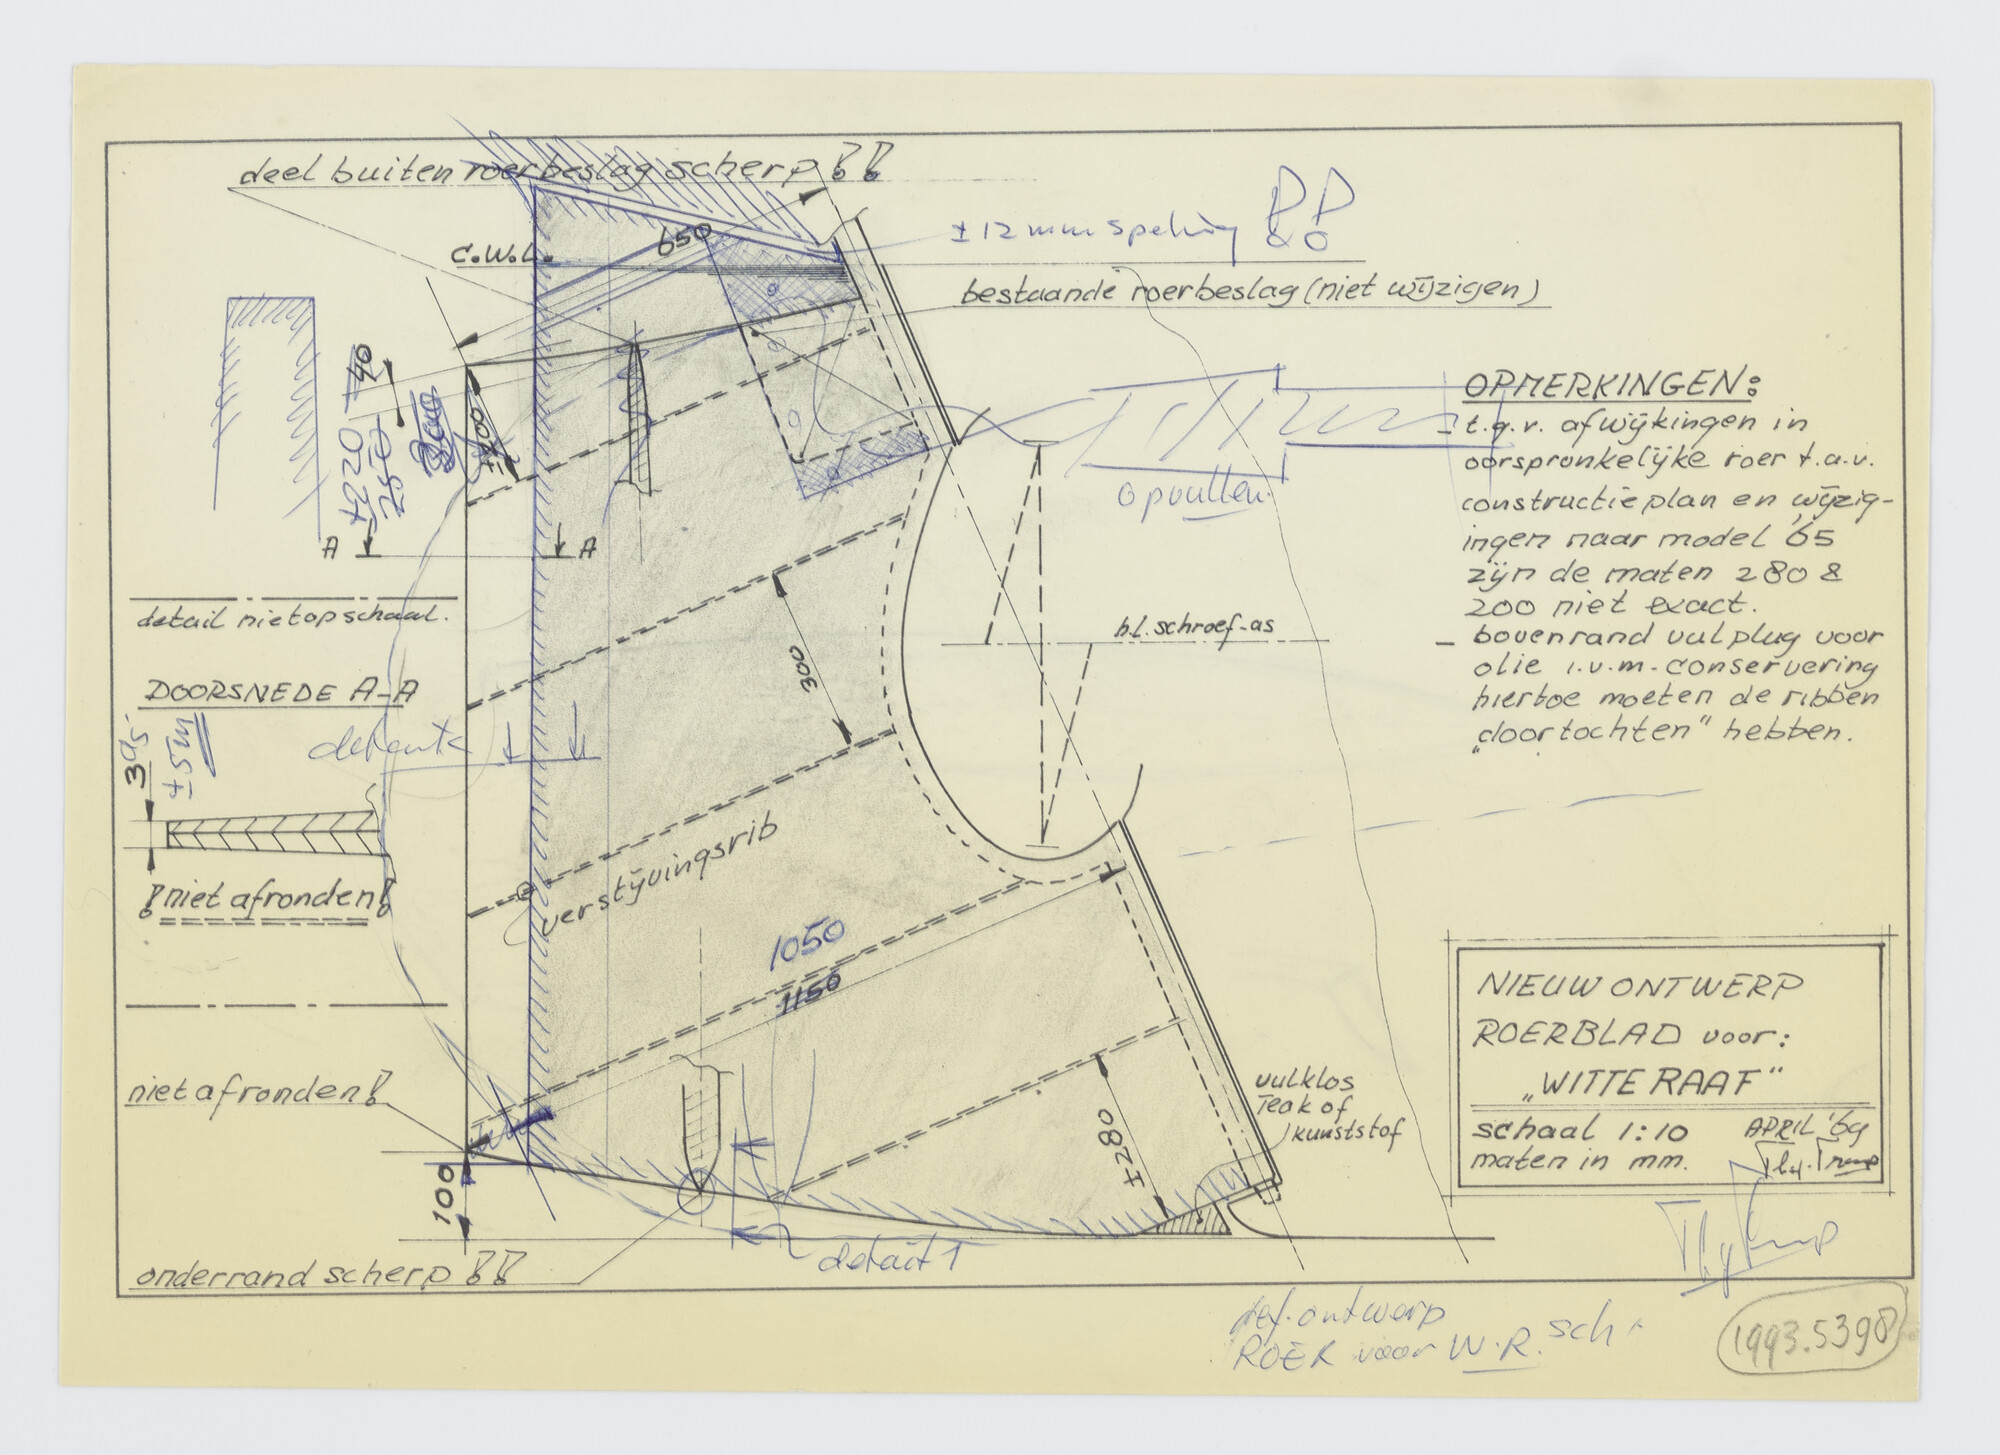 deel buiten roerbeslag scherp !!
c.w.l.
650
± 12 mm speling !!
bestaande roerbeslag (niet wijzigen)
40
±220
250
±200
A
A
opvullen.
OPMERKINGEN:
- t.g.v. afwijkingen in
oorspronkelijke roer t.a.v.
constructieplan en wijzig-
ingen naar model '65
zijn de maten 280 &
200 niet exact.
- bovenrand vulplug voor
olie i.v.m. conservering
hiertoe moeten de ribben
„doortochten" hebben.
h.l. schroef-as
300
detail niet op schaal.
DOORSNEDE A-A
±5m
!niet afronden!
verstijvingsrib
1050
1150
niet afronden!
100
±280
vulklos
Teak of
kunststof
onderrand scherp !!
detail 1
NIEUW ONTWERP
ROERBLAD voor:
„WITTE RAAF"
schaal 1:10
APRIL '69
maten in mm.
def. ontwerp
ROER voor W.R. sch
1993.5398